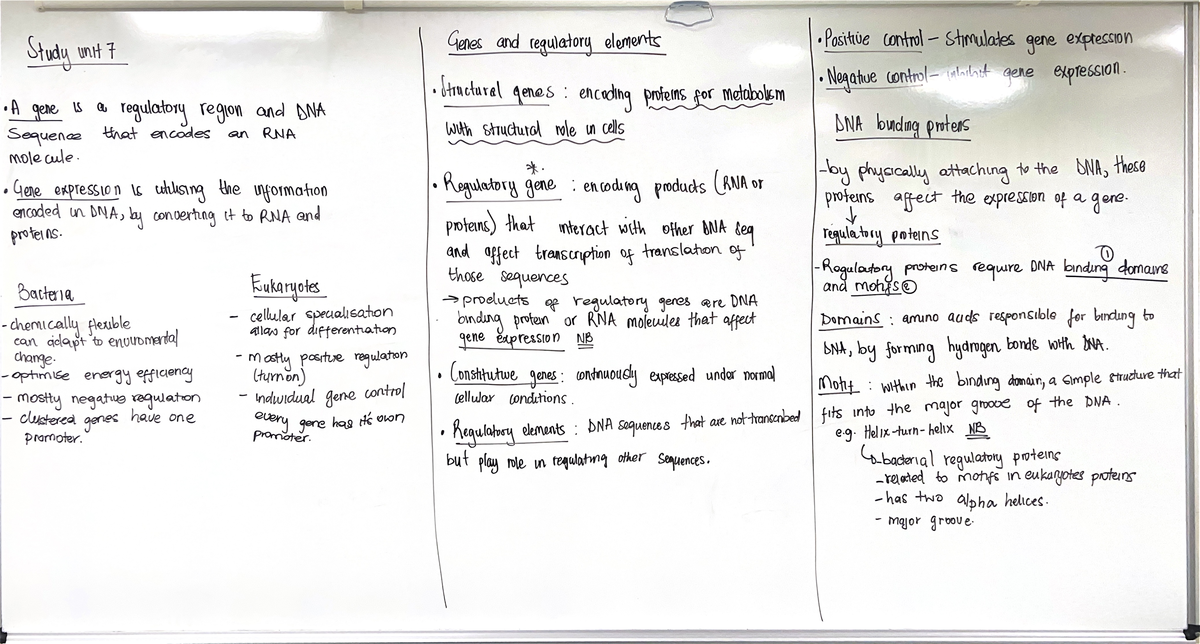 Study unit 7
• A gene is a regulatory region and DNA
Sequence that encodes an RNA
molecule.
• Gene expression is utilising the information
encoded in DNA, by converting it to RNA and
proteins.
Bacteria
- chemically flexible
can adapt to enviromental
change.
- optimise energy efficiency
- mostly negative regulation
- clustered genes have one
promoter.
Eukaryotes
- cellular specialisation
allow for differentiation
- mostly positive regulation
(turn on)
- individual gene control
every gene has it's own
promoter.
Genes and regulatory elements
• Structural genes : encoding proteins for metabolism
with structural role in cells
*
• Regulatory gene : encoding products (RNA or
proteins) that interact with other DNA seq
and affect transcription of translation of
those sequences
→ products of regulatory genes are DNA
binding protein or RNA molecules that affect
gene expression NB
• Constitutive genes : continuously expressed under normal
cellular conditions.
• Regulatory elements : DNA sequences that are not-transcribed
but play role in regulating other sequences.
• Positive control - Stimulates gene expression
• Negative control - inhibit gene expression.
DNA binding protens
- by physically attaching to the DNA, these
proteins affect the expression of a gene.
↓
regulatory proteins
①
- Regulatory proteins require DNA binding domains
and motifs ②
Domains : amino acids responsible for binding to
DNA, by forming hydrogen bonds with DNA.
Motif : within the binding domain, a simple structure that
fits into the major groove of the DNA.
e.g. Helix-turn-helix NB
↳ bacterial regulatory proteins
- related to motifs in eukaryotes proteins
- has two alpha helices.
- major groove.